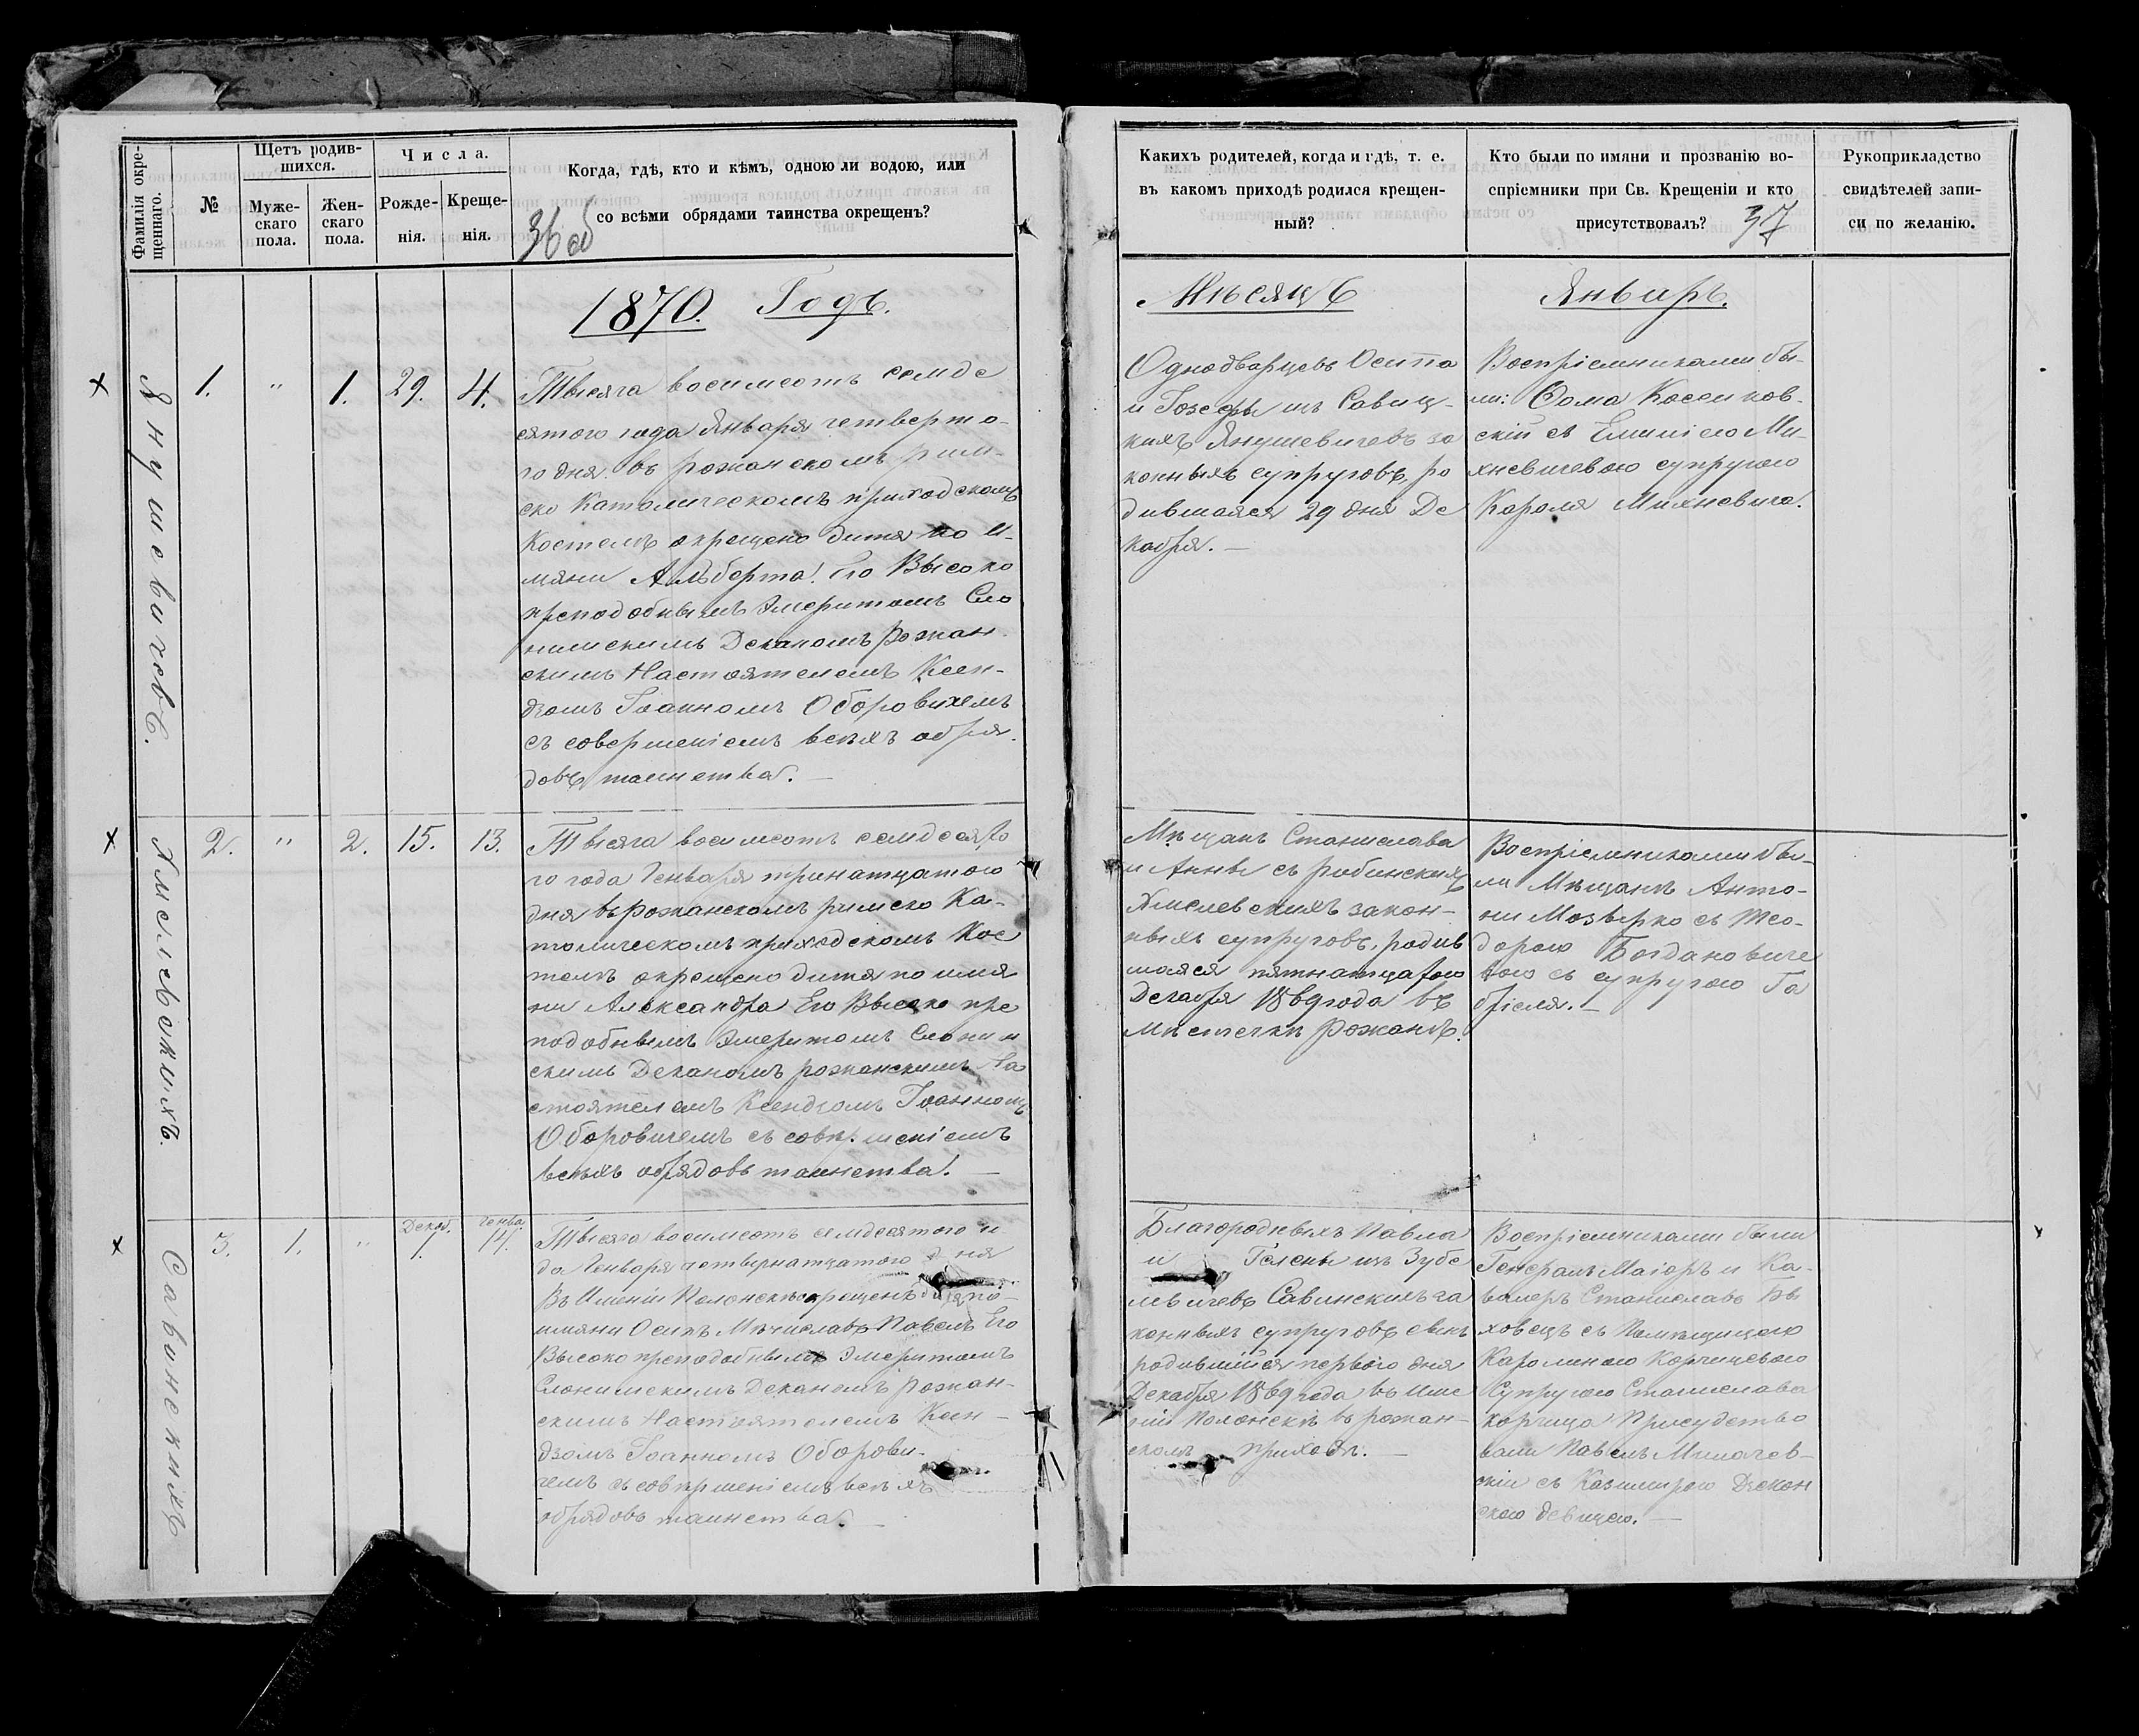 Фамилія окре-
щеннаго.
№
Щетъ родив-
шихся.
Муже-
скаго
пола.
Жен-
скаго
пола.
Числа.
Рожде-
нія.
Креще-
нія.
Когда, гдѣ, кто и кѣмъ, одною ли водою, или
со всѣми обрядами таинства окрещенъ?
36 об
1870. Годъ.
Янушевичевъ.
1.
"
1.
29.
4.
Тысяча восимсотъ семде
сятого года Января четверто-
го дня въ рожанскомъ рим-
ско Католическомъ приходскомъ
Костелѣ окрещено дитя по и-
мяни Альберта. Его Высоко
преподобнымъ Эмеритомъ Сло
нимскимъ Деканомъ Рожан-
скимъ Настоятелемъ Ксен-
дзомъ Іоанномъ Оборовичемъ
съ совершеніемъ всѣхъ обря-
довъ таинства. —
Хмелевскихъ.
2.
"
2.
15.
13.
Тысяча восимсотъ семдесято
го года Генваря тринатцатого
дня въ рожанскомъ римско Ка-
толическомъ приходскомъ Кос
телѣ окрещено дитя по имя
ни Александра Его Высоко пре
подобнымъ Эмеритомъ Слоним
скимъ Деканомъ рожанскимъ На
стоятелемъ Ксендзомъ Іоанномъ
Оборовичемъ съ совершеніемъ
всѣхъ обрядовъ таинства. —
Савинскихъ
3.
1.
"
Декаб.
1.
Генва
14.
Тысяча восимсотъ семдесятого го
да Генваря четвернатцатого дня
Въ Имѣніи Полонскѣ окрещенъ дитя по-
имяни Осипъ Мѣчиславъ Павелъ Его
Высоко преподобнымъ Эмеритомъ
Слонимскимъ Деканомъ Рожан-
скимъ Настоятелемъ Ксен-
дзомъ Іоанномъ Оборови-
чемъ съ совершеніемъ всѣхъ
обрядовъ таинства. —
Какихъ родителей, когда и гдѣ, т. е.
въ какомъ приходѣ родился крещен-
ный?
Кто были по имяни и прозванію во-
спріемники при Св. Крещеніи и кто
присутствовалъ?
37
Рукоприкладство
свидѣтелей запи-
си по желанію.
Мѣсяцъ
Январь.
Однодворцевъ Осипа
и Гозефы изъ Савиц-
кихъ Янушевичевъ за
конныхъ супруговъ, ро
дившаяся 29 дня Де
кабря. —
Воспріемниками бы-
ли: Ѳома Коссиков-
скій съ Емиліею Ми-
хневичевою супругою
Кароля Михневича.
Мѣщанъ Станислава
и Анны съ рабинскихъ
Хмелевскихъ закон-
ныхъ супруговъ, родив
шаяся пятнатцатого
Декабря 1869 года въ
Мѣстечкѣ Рожанѣ.
Воспріемниками бы-
ли Мѣщанъ Анто-
ни Мозырко съ Тео-
дорою Богдановиче
вою съ супругою Га
бріеля. —
Благородныхъ Павла
и Гелены изъ Зубе
левичевъ Савинскихъ за
конныхъ супруговъ сынъ
родившійся первого дня
Декабря 1869 года въ име
ніи Полонскѣ въ рожан-
скомъ приходѣ. —
Воспріемниками были
Генералъ Маіоръ и Ка-
валеръ Станиславъ Бы
ховецъ съ Помѣщицею
Каролиною Корчицевою
Супругою Станислава
корчица Присудство
вали Павелъ Милачев-
скіи съ Казимирою Декон
скою девицею. —